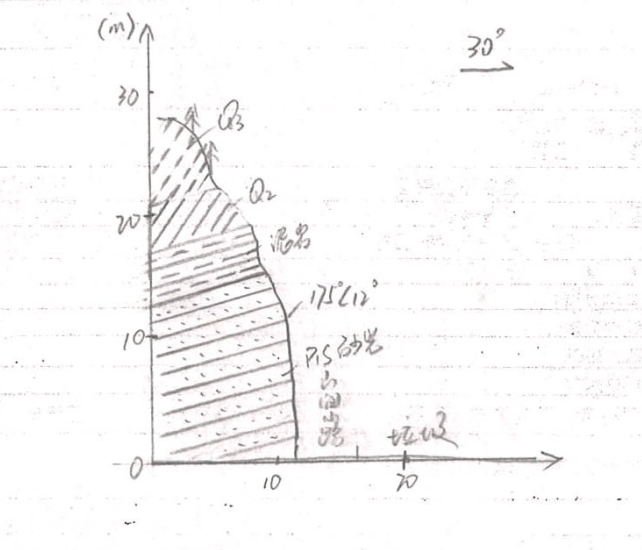 (m)
30°
30
Q3
Q2
20
泥岩
175°∠12°
10
P1s 砂岩
山间路
垃圾
0
10
20